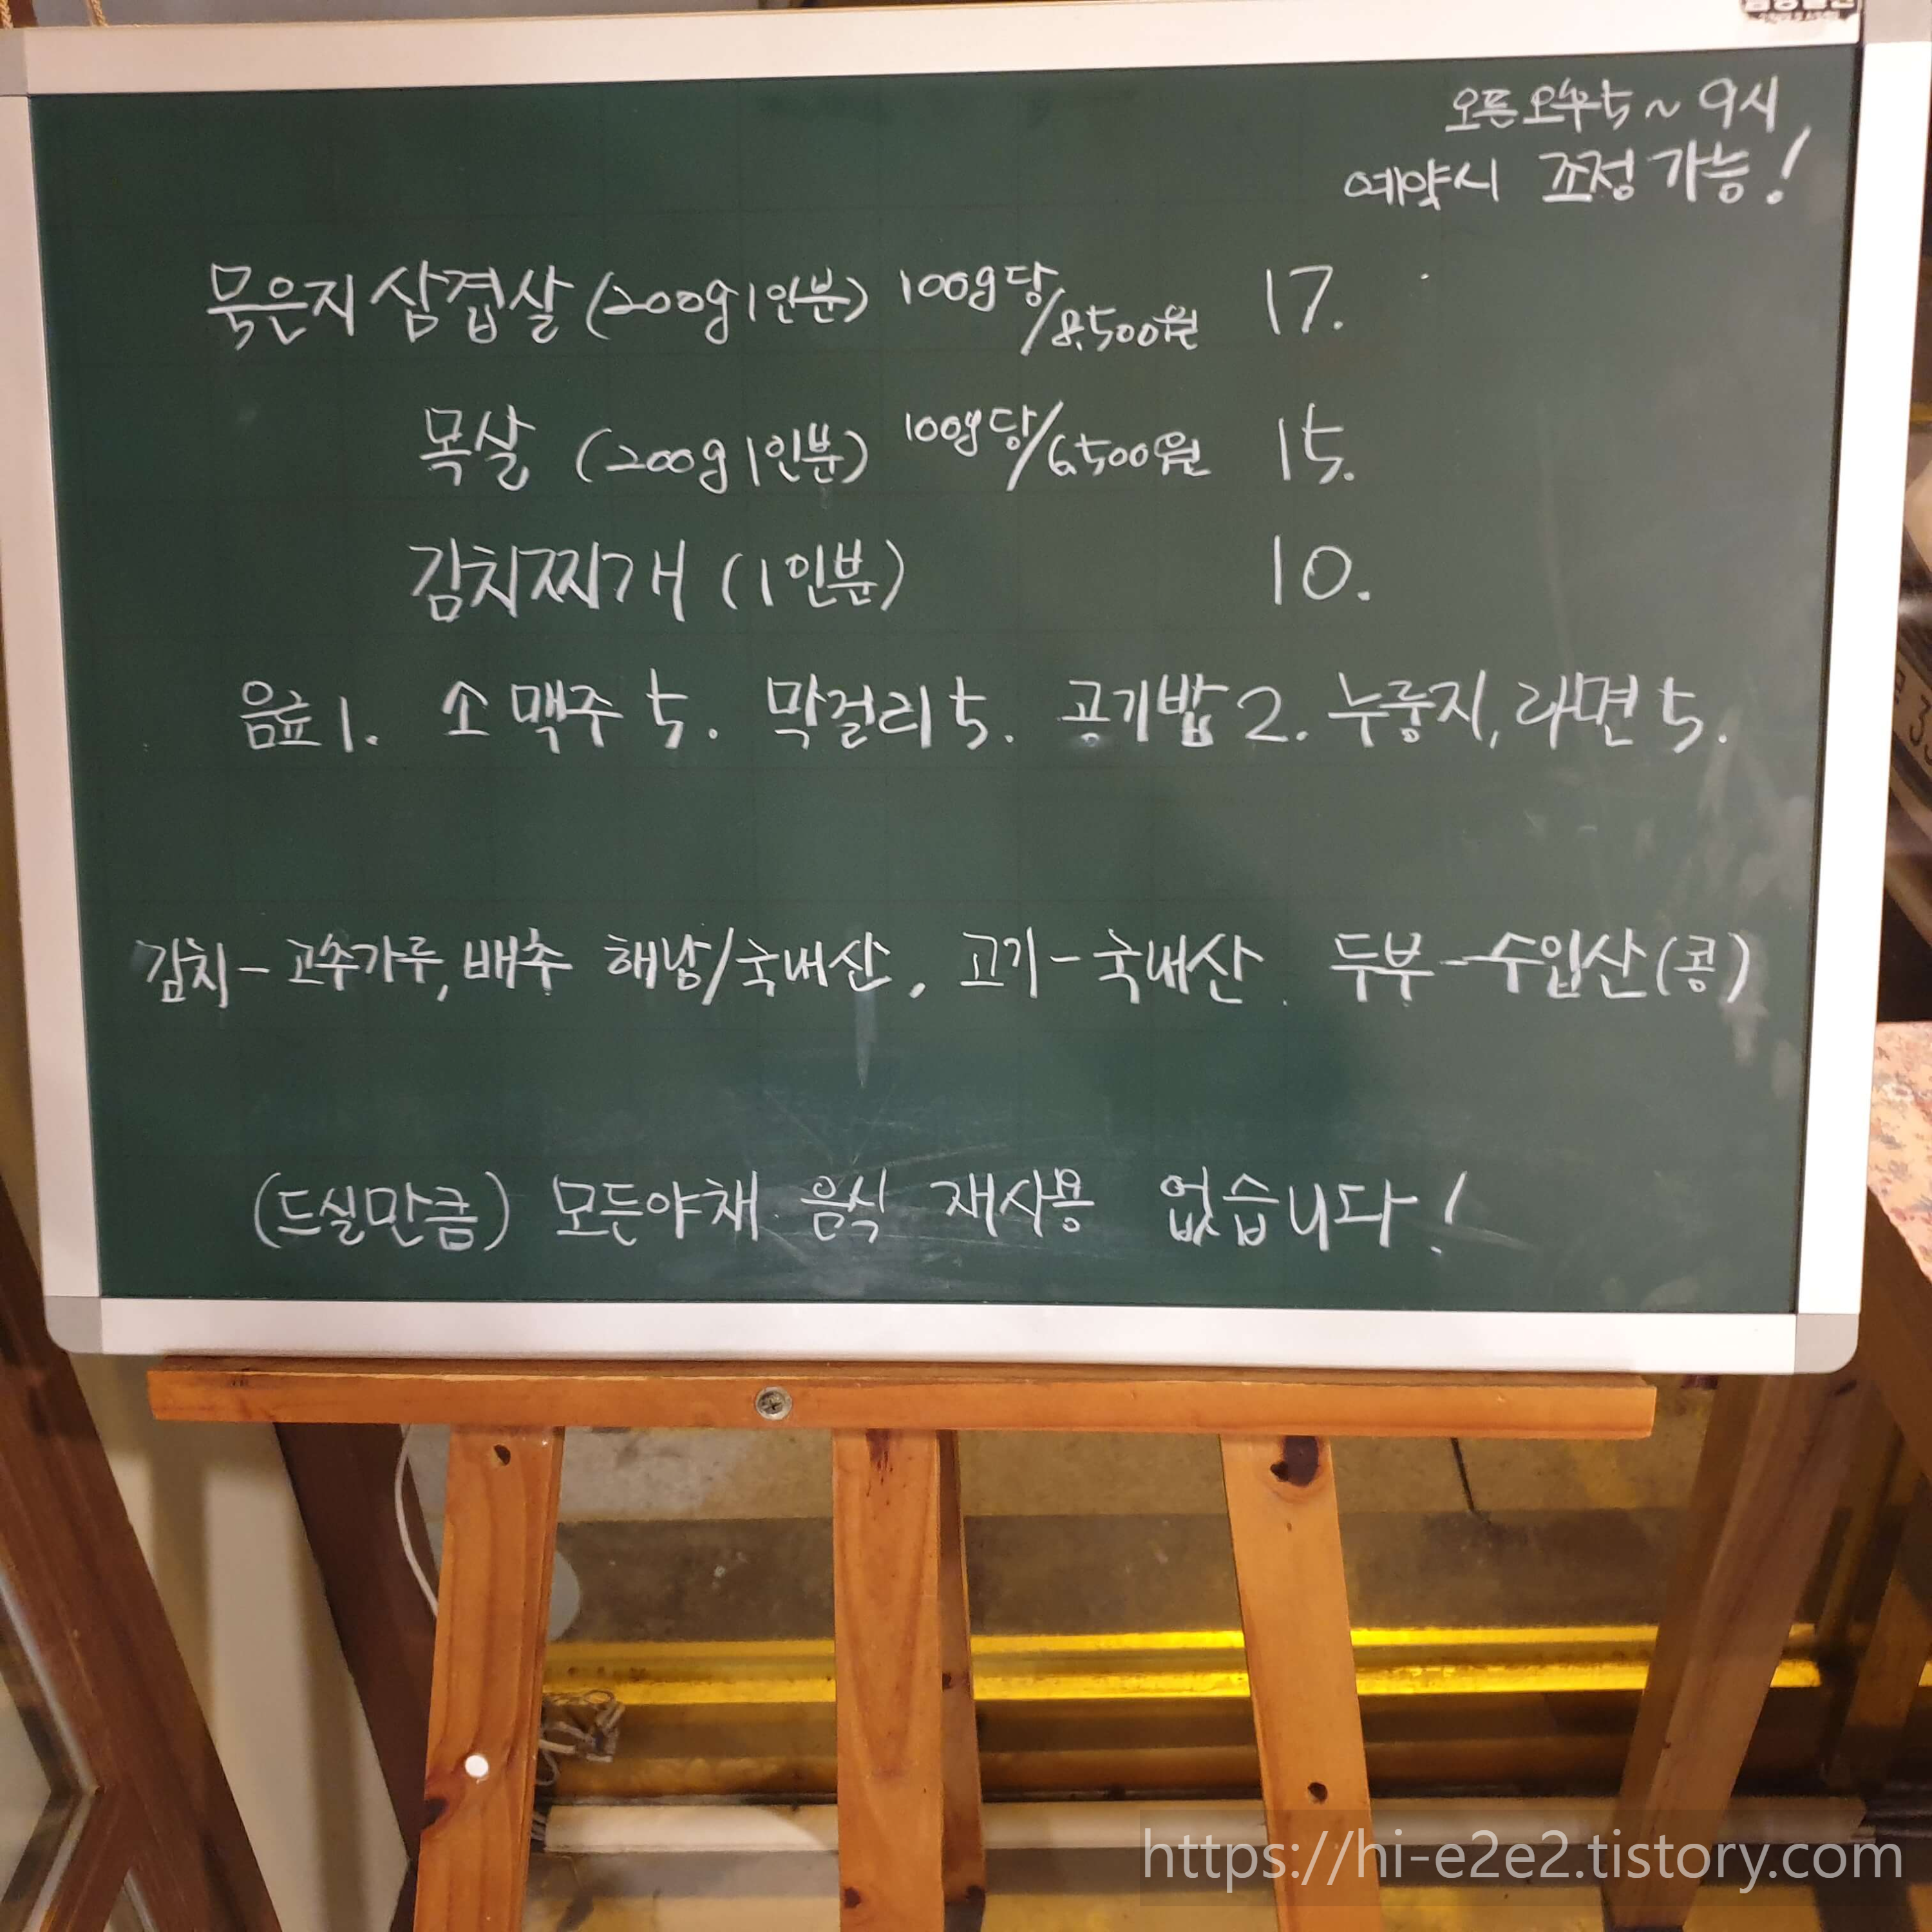 오픈 오후 5~9시
예약시 조정 가능!
묵은지 삼겹살 (200g 1인분) 100g당/8.500원 17.
목살 (200g 1인분) 100g당/6.500원 15.
김치찌개 (1인분) 10.
음료 1. 소맥주 5. 막걸리 5. 공기밥 2. 누룽지, 라면 5.
김치-고추가루, 배추 해남/국내산, 고기-국내산. 두부-수입산(콩)
(드실만큼) 모든야채 음식 재사용 없습니다!
https://hi-e2e2.tistory.com